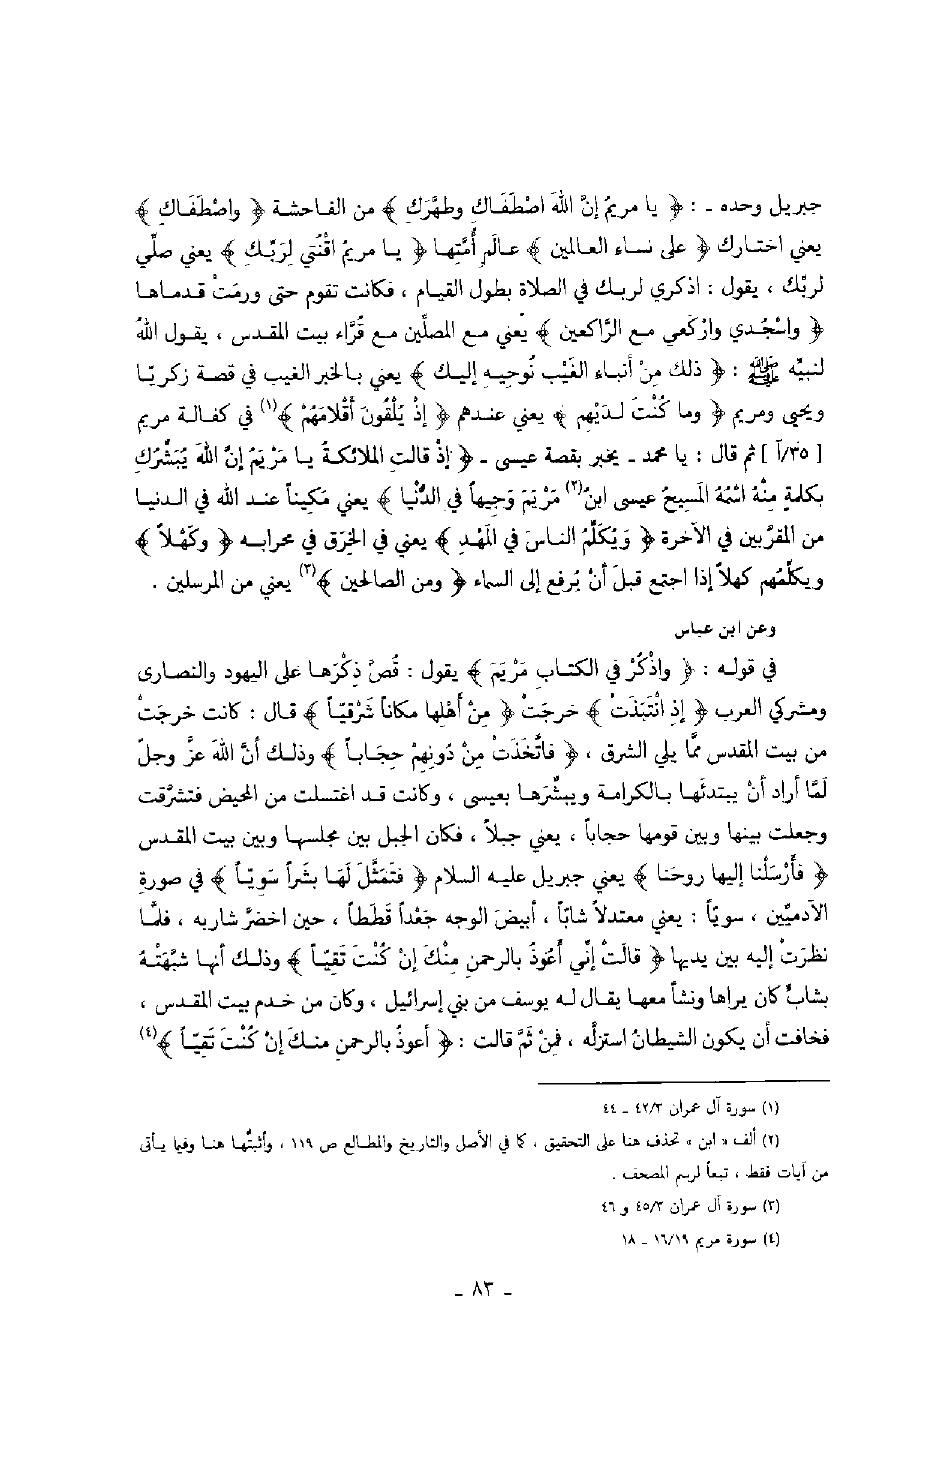 جبريل وحده - : ﴿ يا مريمُ إنَّ اللهَ اصْطَفَاكِ وطهَّركِ ﴾ من الفاحشة ﴿ واصْطَفَاكِ ﴾
يعني اختارك ﴿ على نساء العالمين ﴾ عالَمِ أُمَّتها ﴿ يا مريمُ اقْنُتي لِرَبِّكِ ﴾ يعني صلِّي
لربِّك ، يقول : اذكري لربك في الصلاة بطول القيام ، فكانت تقوم حتى ورمَتْ قدماها
﴿ واسْجُدي وارْكَعي مع الرَّاكعين ﴾ يعني مع المصلِّين مع قُرَّاء بيت المقدس ، يقول اللهُ
لنبيِّه ﷺ : ﴿ ذلك مِنْ أنباء الغَيْبِ نُوحيهِ إليك ﴾ يعني بالخبر الغيب في قصة زكريّا
ويحيى ومريم ﴿ وما كُنْتَ لدَيْهم ﴾ يعني عندهم ﴿ إذْ يُلْقُونَ أقْلامَهُمْ ﴾(١) في كفالة مريم
[ ٣٥/آ ] ثم قال : يا محمد - يخبر بقصة عيسى - ﴿ إذْ قالتِ الملائكةُ يا مَرْيَمُ إنَّ اللهَ يُبَشِّرُكِ
بكلمةٍ مِنْهُ اسْمُهُ المَسِيحُ عيسى ابنُ(٢) مَرْيَمَ وَجِيهاً في الدُّنْيا ﴾ يعني مَكيناً عند الله في الدنيا
من المقرَّبين في الآخرة ﴿ وَيُكَلِّمُ الناسَ في المَهْدِ ﴾ يعني في الخِرَق في محرابه ﴿ وكَهْلاً ﴾
ويكلِّمُهم كهلاً إذا اجتمع قبلَ أنْ يُرفع إلى السماء ﴿ ومن الصالحين ﴾(٣) يعني من المرسلين .
وعن ابن عباس
في قوله : ﴿ واذْكُرْ في الكتابِ مَرْيَمَ ﴾ يقول : قُصَّ ذِكْرَها على اليهود والنصارى
ومشركي العرب ﴿ إذِ انْتَبَذَتْ ﴾ خرجَتْ ﴿ مِنْ أهْلِها مكاناً شَرْقيّاً ﴾ قال : كانت خرجَتْ
من بيت المقدس ممّا يلي الشرق ، ﴿ فاتَّخَذَتْ مِنْ دُونِهِمْ حِجَاباً ﴾ وذلك أنَّ اللهَ عزَّ وجلَّ
لَمَّا أراد أنْ يبتدئَها بالكرامة ويبشِّرَها بعيسى ، وكانت قد اغتسلت من المحيض فتشرَّقت
وجعلت بينها وبين قومها حجاباً ، يعني جبلاً ، فكان الجبل بين مجلسها وبين بيت المقدس
﴿ فأَرْسَلْنا إليها روحَنا ﴾ يعني جبريل عليه السلام ﴿ فتَمَثَّلَ لَهَا بشَراً سَويّاً ﴾ في صورةِ
الآدميِّين ، سوياً : يعني معتدلاً شابّاً ، أبيضَ الوجه جَعْداً قَطَطاً ، حين اخضرَّ شاربه ، فلمَّا
نظرَتْ إليه بين يديها ﴿ قالَتْ إنِّي أعُوذُ بالرحمنِ مِنْكَ إنْ كُنْتَ تَقِيّاً ﴾ وذلك أنها شبَّهَتْهُ
بشابٍّ كان يراها ونشأ معها يقال له يوسف من بني إسرائيل ، وكان من خدم بيت المقدس ،
فخافت أن يكون الشيطانُ استزلَّه ، فمِنْ ثَمَّ قالت : ﴿ أعوذُ بالرحمنِ منكَ إنْ كُنْتَ تَقيّاً ﴾(٤)
(١) سورة آل عمران ٤٢/٣ - ٤٤
(٢) ألف « ابن » تحذف هنا على التحقيق ، كما في الأصل والتاريخ والمطالع ص ١١٩ ، وأثبتُّها هنا وفيما يأتي
من آيات فقط ، تبعاً لرسم المصحف .
(٣) سورة آل عمران ٤٥/٣ و ٤٦
(٤) سورة مريم ١٦/١٩ - ١٨
- ٨٣ -